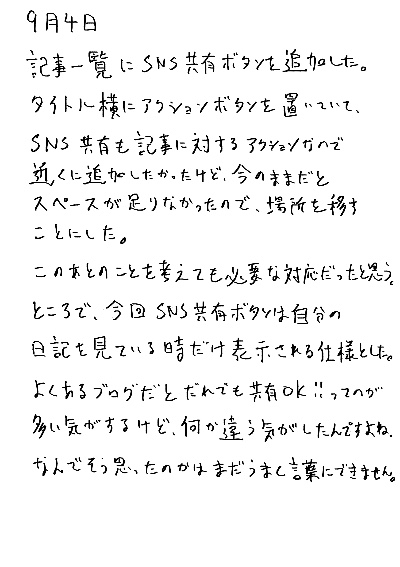 9月4日
記事一覧にSNS共有ボタンを追加した。
タイトル横にアクションボタンを置いていて、
SNS共有も記事に対するアクションなので
近くに追加したかったけど、今のままだと
スペースが足りなかったので、場所を移す
ことにした。
このあとのことを考えても必要な対応だったと思う。
ところで、今回SNS共有ボタンは自分の
日記を見ている時だけ表示される仕様とした。
よくあるブログだとだれでも共有OK!!ってのが
多い気がするけど、何か違う気がしたんですよね。
なんでそう思ったのかはまだうまく言葉にできません。